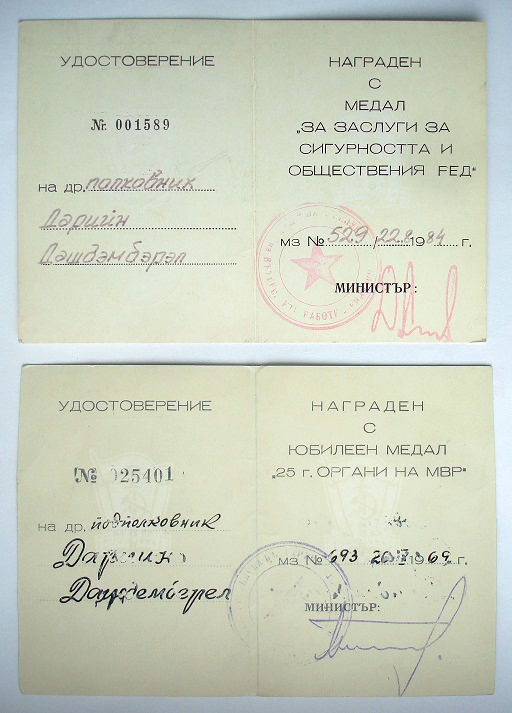 УДОСТОВЕРЕНИЕ
№ 001589
на др. полковник
Дэрийн
Дэшдэмбэрэл
НАГРАДЕН
С
МЕДАЛ
„ЗА ЗАСЛУГИ ЗА
СИГУРНОСТТА И
ОБЩЕСТВЕНИЯ РЕД“
мз № 529 22.8.1984 г.
МИНИСТЪР:
УДОСТОВЕРЕНИЕ
№ 025401
на др. подполковник
НАГРАДЕН
С
ЮБИЛЕЕН МЕДАЛ
„25 г. ОРГАНИ НА МВР“
мз № 693 1969 г.
МИНИСТЪР: